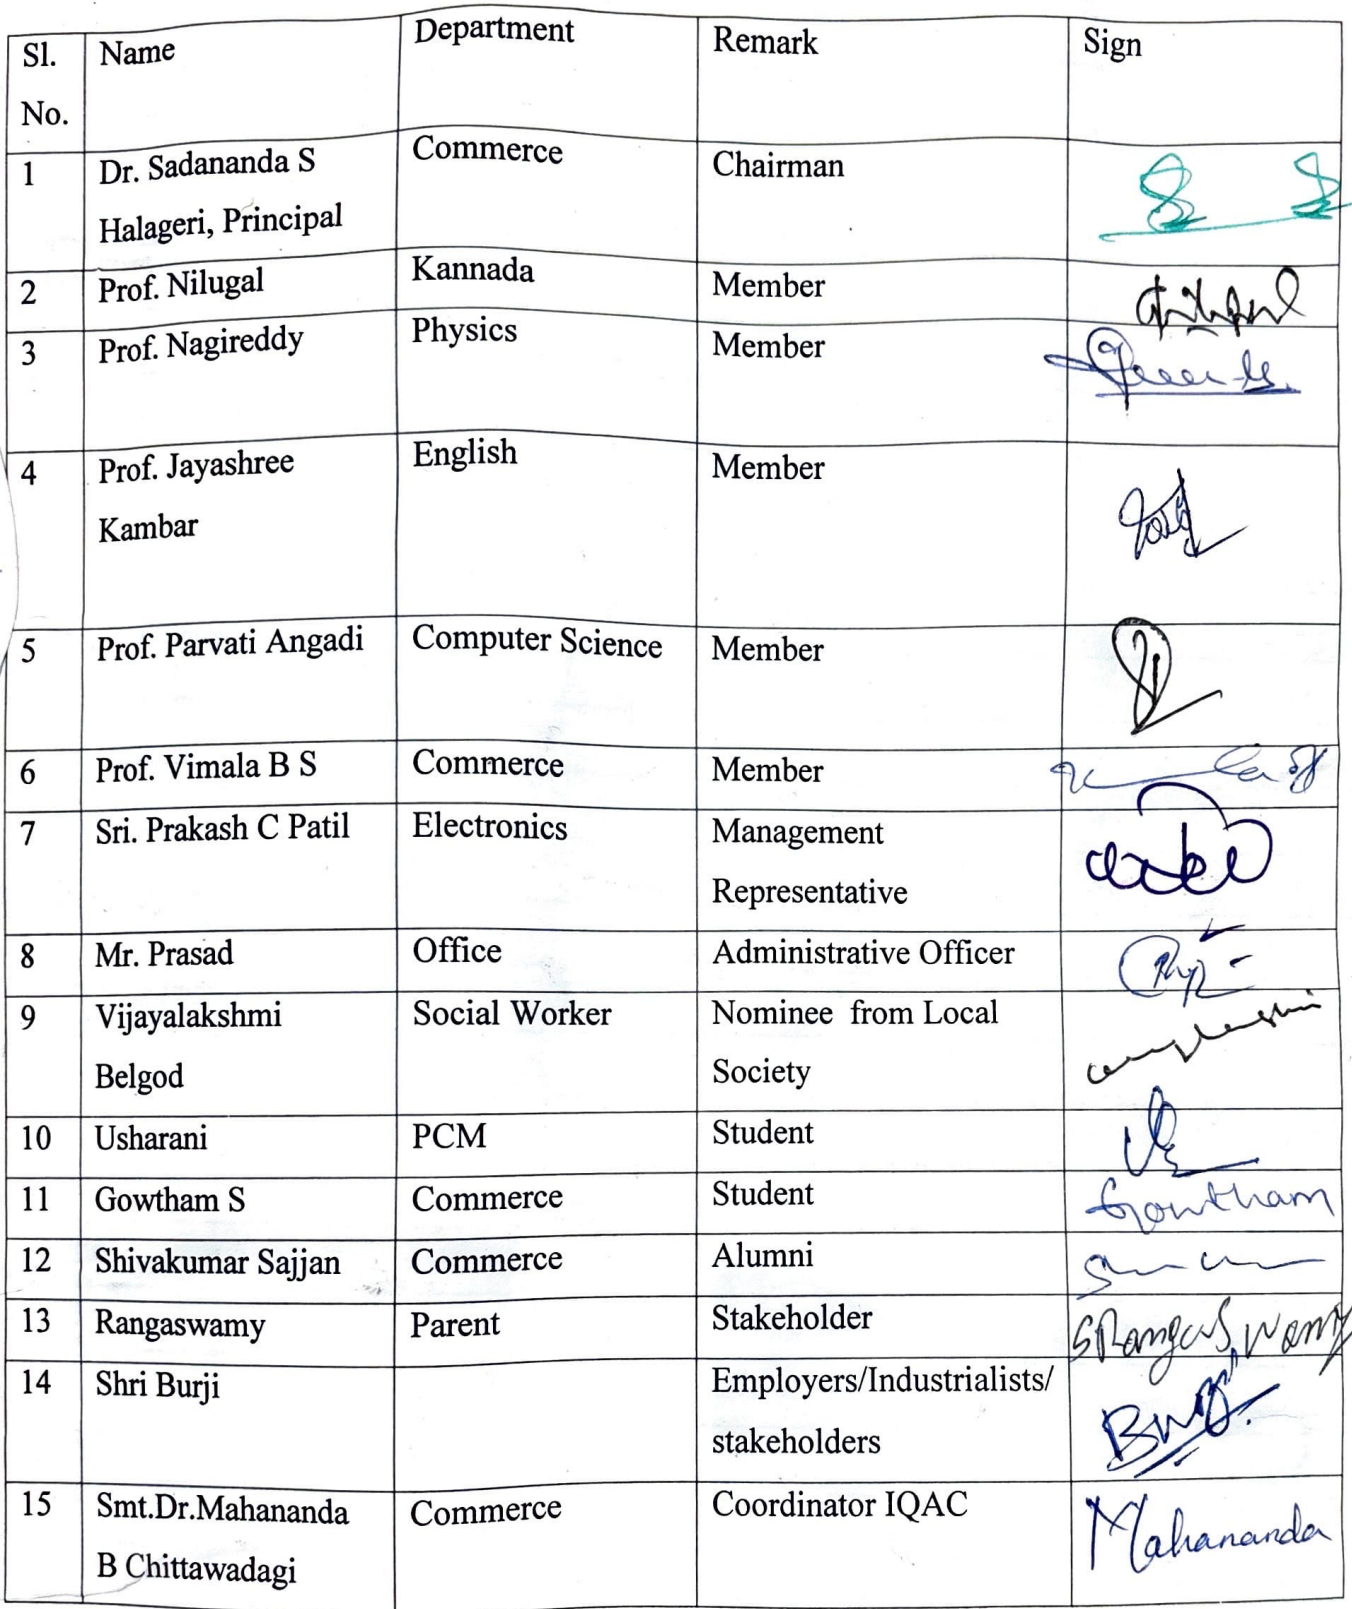 Sl. Name Department Remark Sign
No.
1 Dr. Sadananda S Commerce Chairman
Halageri, Principal
2 Prof. Nilugal Kannada Member
3 Prof. Nagireddy Physics Member
4 Prof. Jayashree English Member
Kambar
5 Prof. Parvati Angadi Computer Science Member
6 Prof. Vimala B S Commerce Member
7 Sri. Prakash C Patil Electronics Management
Representative
8 Mr. Prasad Office Administrative Officer
9 Vijayalakshmi Social Worker Nominee from Local
Belgod Society
10 Usharani PCM Student
11 Gowtham S Commerce Student Gowtham
12 Shivakumar Sajjan Commerce Alumni
13 Rangaswamy Parent Stakeholder SRangaswamy
14 Shri Burji Employers/Industrialists/
stakeholders
15 Smt.Dr.Mahananda Commerce Coordinator IQAC Mahananda
B Chittawadagi